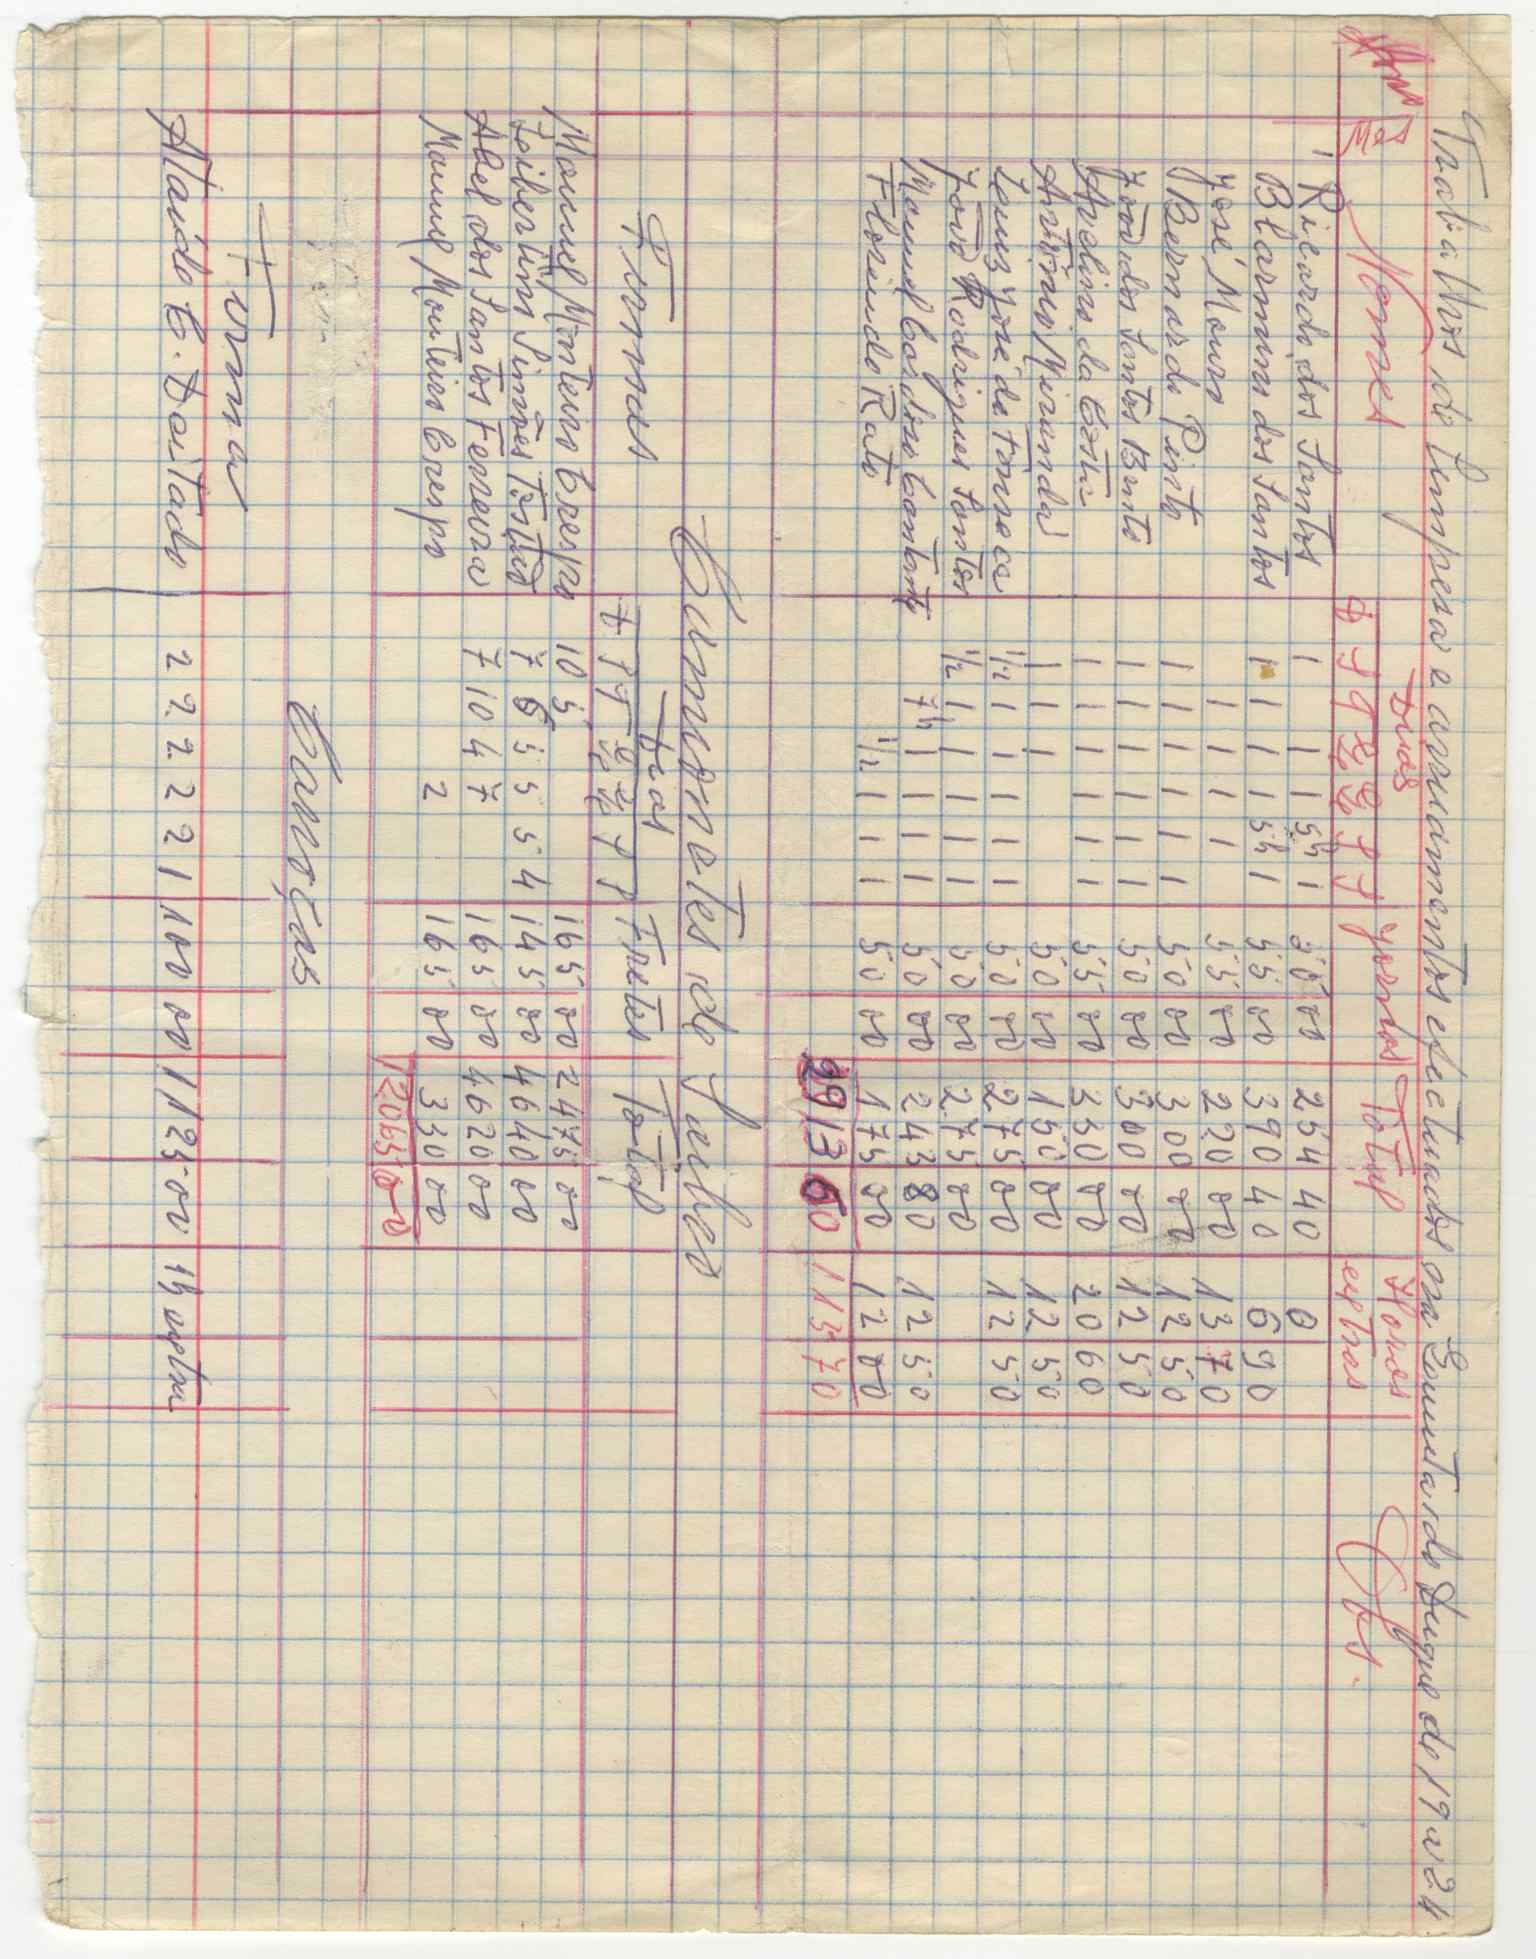 Trabalhos de limpesa e arruamentos efectuados na Quinta do Duque de 19 a 24
Nomes Dias Jornas Total Horas extras Obs.
1 Ricardo dos Santos 1 1 1 5h 1 55 00 254 40 0
Bl dos Santos 1 1 1 1 5h 1 55 00 390 40 6 90
José Moura 1 1 1 1 55 00 220 00 13 70
Bernardo Pinto 1 1 1 1 1 1 50 00 300 00 12 50
João dos Santos Bento 1 1 1 1 1 1 50 00 300 00 12 50
Avelino da Costa 1 1 1 1 1 1 55 00 330 00 20 60
António Miranda 1 1 1 50 00 150 00 12 50
Luiz José da Fonseca 1/2 1 1 1 1 1 50 00 275 00 12 50
João Rodrigues Santos 1/2 1 1 1 1 1 50 00 275 00
Manuel Cardoso 7h 1 1 1 1 50 00 243 80 12 50
Florindo Rato 1/2 1 1 1 50 00 175 00 12 00
2913 60 115 70
Camionetes de
Firmas Dias Fretes Total
Manuel Monteiro Crespo 10 5 165 00 2475 00
Libertino Simões 7 6 5 5 5 4 145 00 4640 00
Abel dos Santos Ferreira 7 10 4 7 165 00 4620 00
Manuel Monteiro Crespo 2 165 00 330 00
12065 00
Carroças
Firma
Ataíde C. Doitado 2 2 2 2 2 1 100 00 1125 00 1h extra